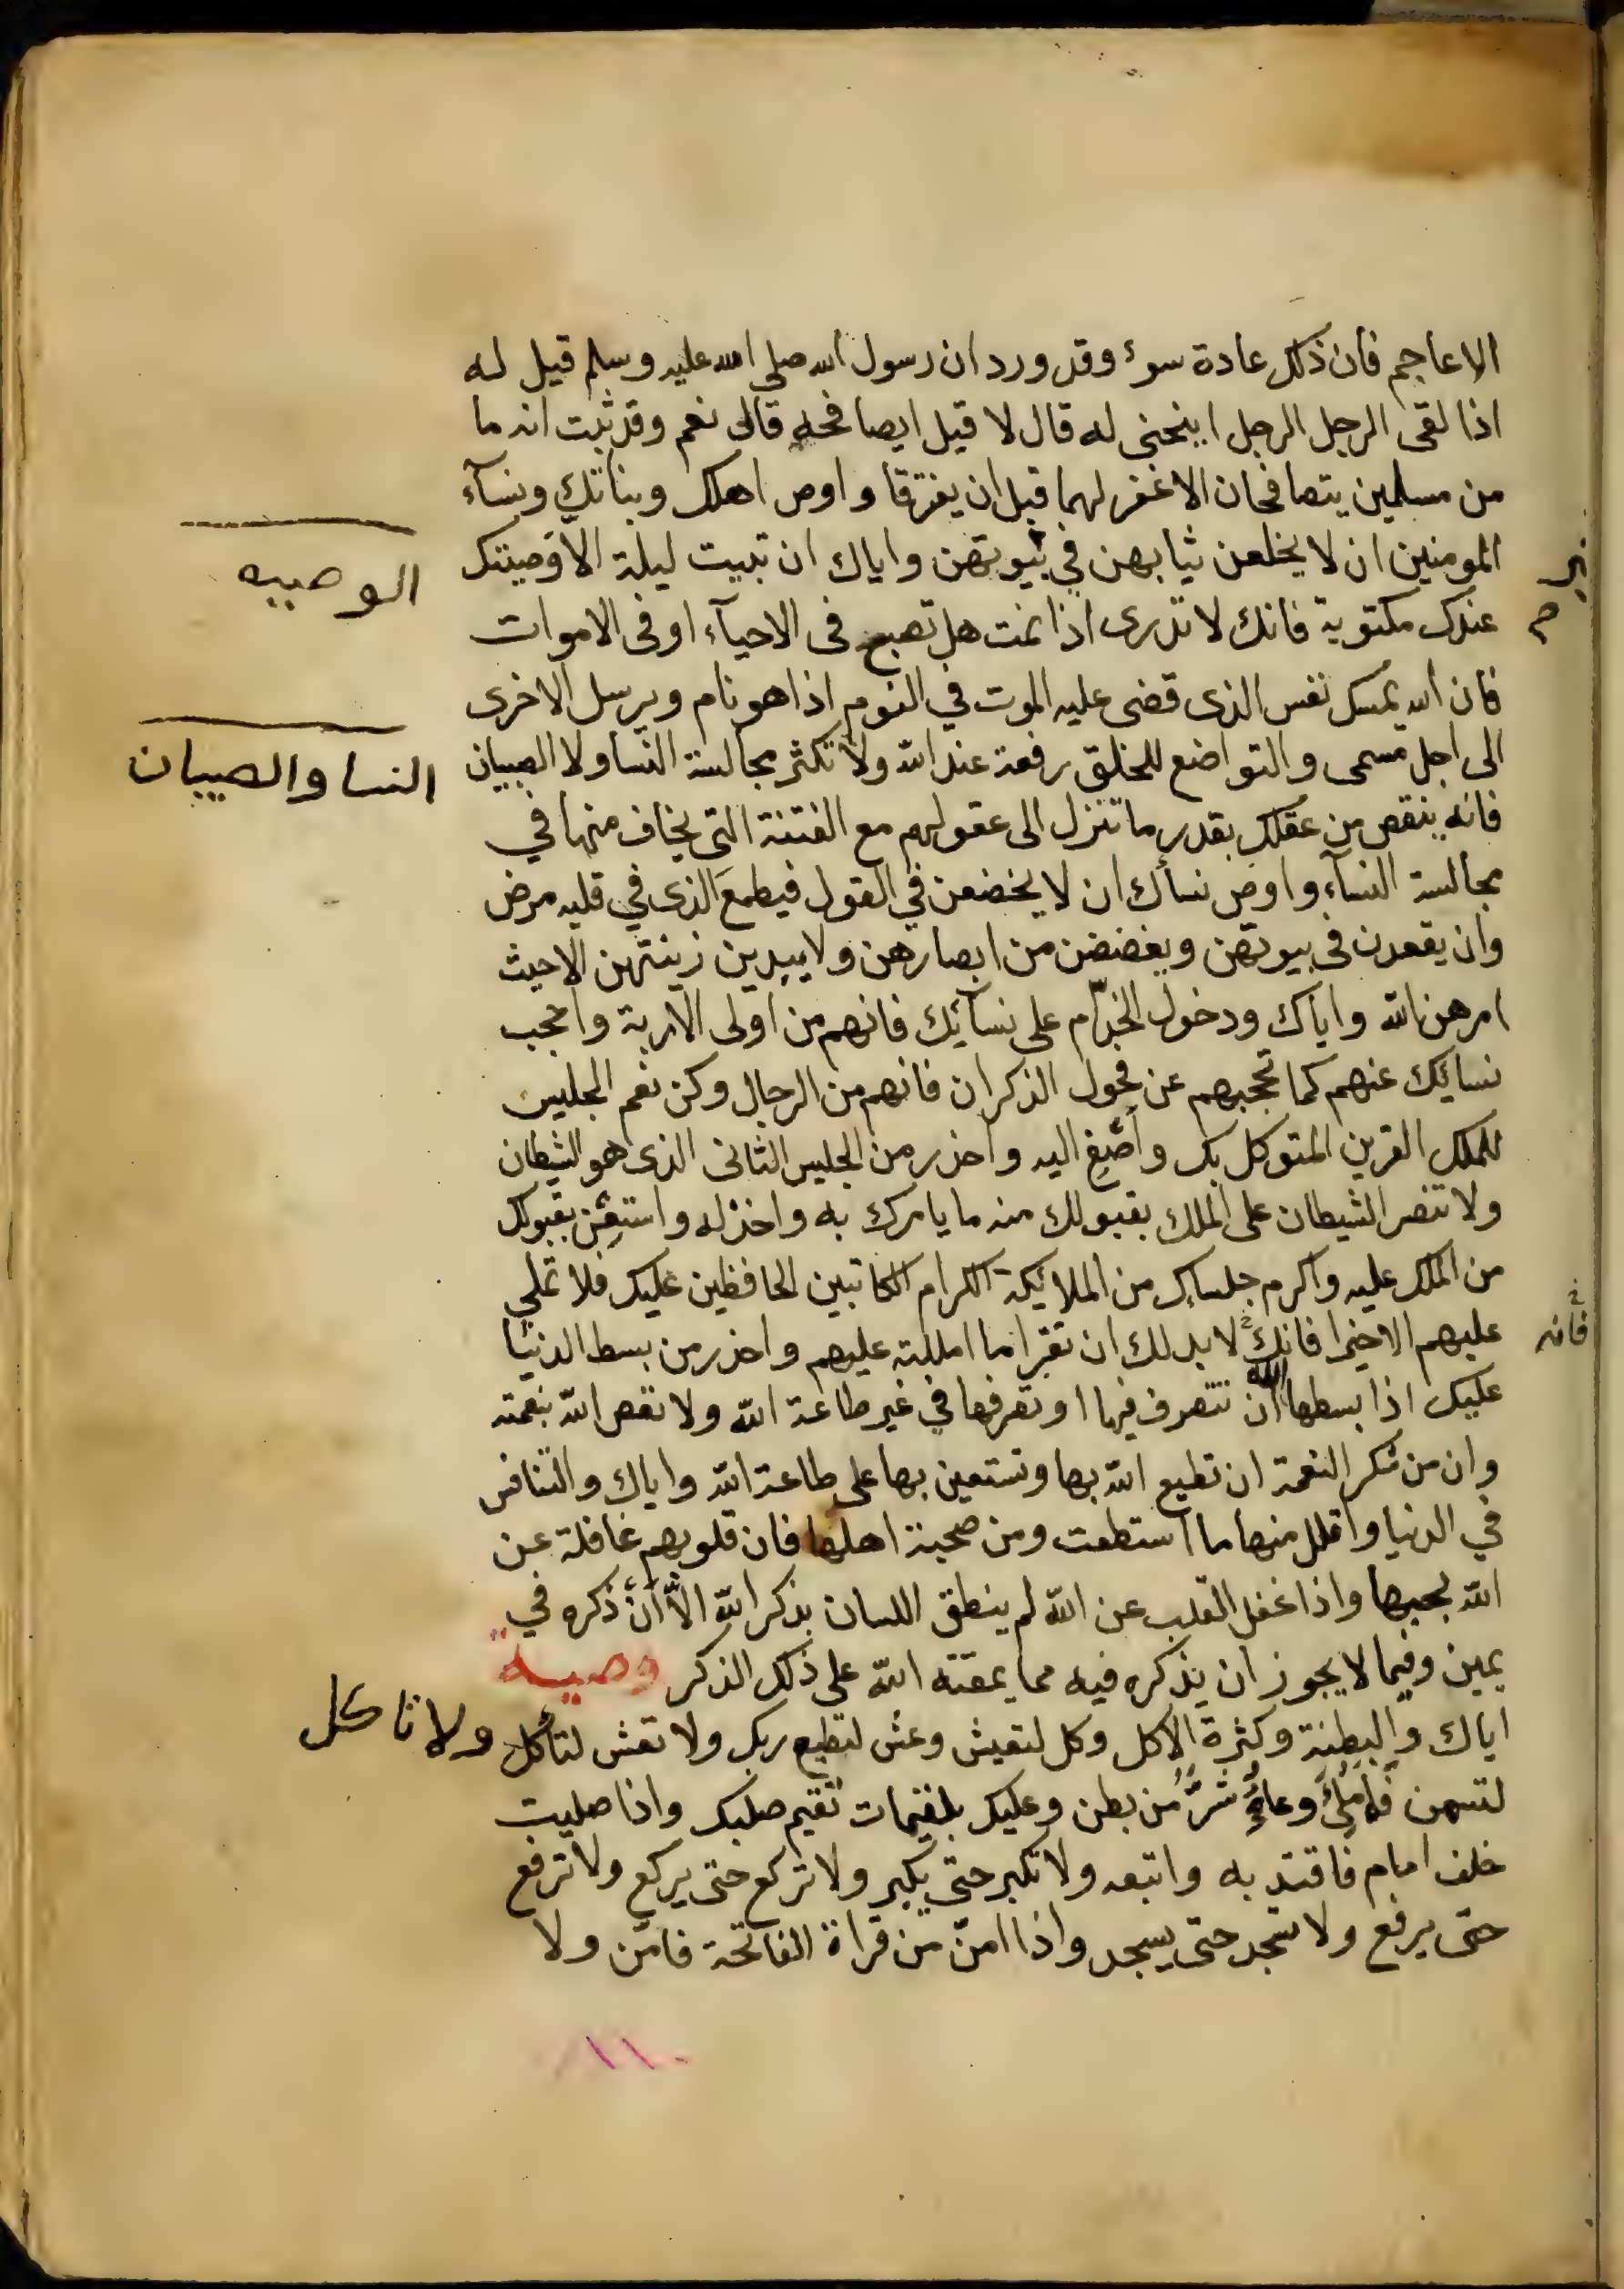 الاعاجم فان ذلك عادة سوء وقد ورد ان رسول الله صلى الله عليه وسلم قيل له
اذا لقى الرجل الرجل اينحنى له قال لا قيل ايصافحه قال نعم وقد ثبت انه ما
من مسلمين يتصافحان الا غفر لهما قبل ان يفترقا واوص اهلك وبناتك ونسآء
المومنين ان لا يخلعن ثيابهن في غير بيوتهن واياك ان تبيت ليلة الا وصيتك
الوصيه
عندك مكتوبة فانك لا تدرى اذا نمت هل تصبح فى الاحيآء او فى الاموات
فان الله يمسك نفس الذى قضى عليه الموت في النوم اذا هو نام ويرسل الاخرى
الى اجل مسمى والتواضع للخلق رفعة عند الله ولا تكثر مجالسة النسا ولا الصبيان
النسا والصبيان
فانه ينقص من عقلك بقدر ما تنزل الى عقولهم مع الفتنة التى يخاف منها في
مجالسة النسآء واوص نسأك ان لا يخضعن في القول فيطمع الذى في قلبه مرض
وان يقعدن فى بيوتهن ويغضضن من ابصارهن ولا يبدين زينتهن الا حيث
امرهن الله واياك ودخول الخدّام على نسآئك فانهم من اولى الاربة واحجب
نسائك عنهم كما تحجبهم عن فحول الذكران فانهم من الرجال وكن نعم الجليس
للملك القرين المتوكل بك وأصْغِ اليه واحذر من الجليس الثانى الذى هو الشيطان
ولا تنصر الشيطان على الملك بقبولك منه ما يامرك به واخذله واستعِن بقبولك
من الملك عليه واكرم جلساك من الملايكة الكرام الكاتبين الحافظين عليك فلا تملي
عليهم الا خيرا فانك لا بد لك ان تقرا ما امليته عليهم واحذر من بسط الدنيا
فانه
عليك اذا بسطها الله ان تتصرف فيها او تصرفها في غير طاعة الله ولا تعص الله بنعمته
وان من شكر النعمة ان تطيع الله بها وتستعين بها على طاعة الله واياك والتنافس
في الدنيا واقلل منها ما استطعت ومن صحبة اهلها فان قلوبهم غافلة عن
الله بحبها واذا غفل القلب عن الله لم ينطق اللسان بذكر الله الاّ ان ذكره في
يمين وفيما لا يجوز ان يذكره فيه مما يمقته الله على ذلك الذكر وصية
اياك والبطنة وكثرة الاكل وكل لتعيش وعش لتطيع ربك ولا تعش لتأكل ولا تاكل
لتسمن فما مُلئ وعاءٌ شرٌّ من بطن وعليك بلقيمات تقيم صلبك واذا صليت
خلف امام فاقتد به واتبعه ولا تكبر حتى يكبر ولا تركع حتى يركع ولا ترفع
حتى يرفع ولا تسجد حتى يسجد واذا امّن من قراة الفاتحة فامّن ولا
١١